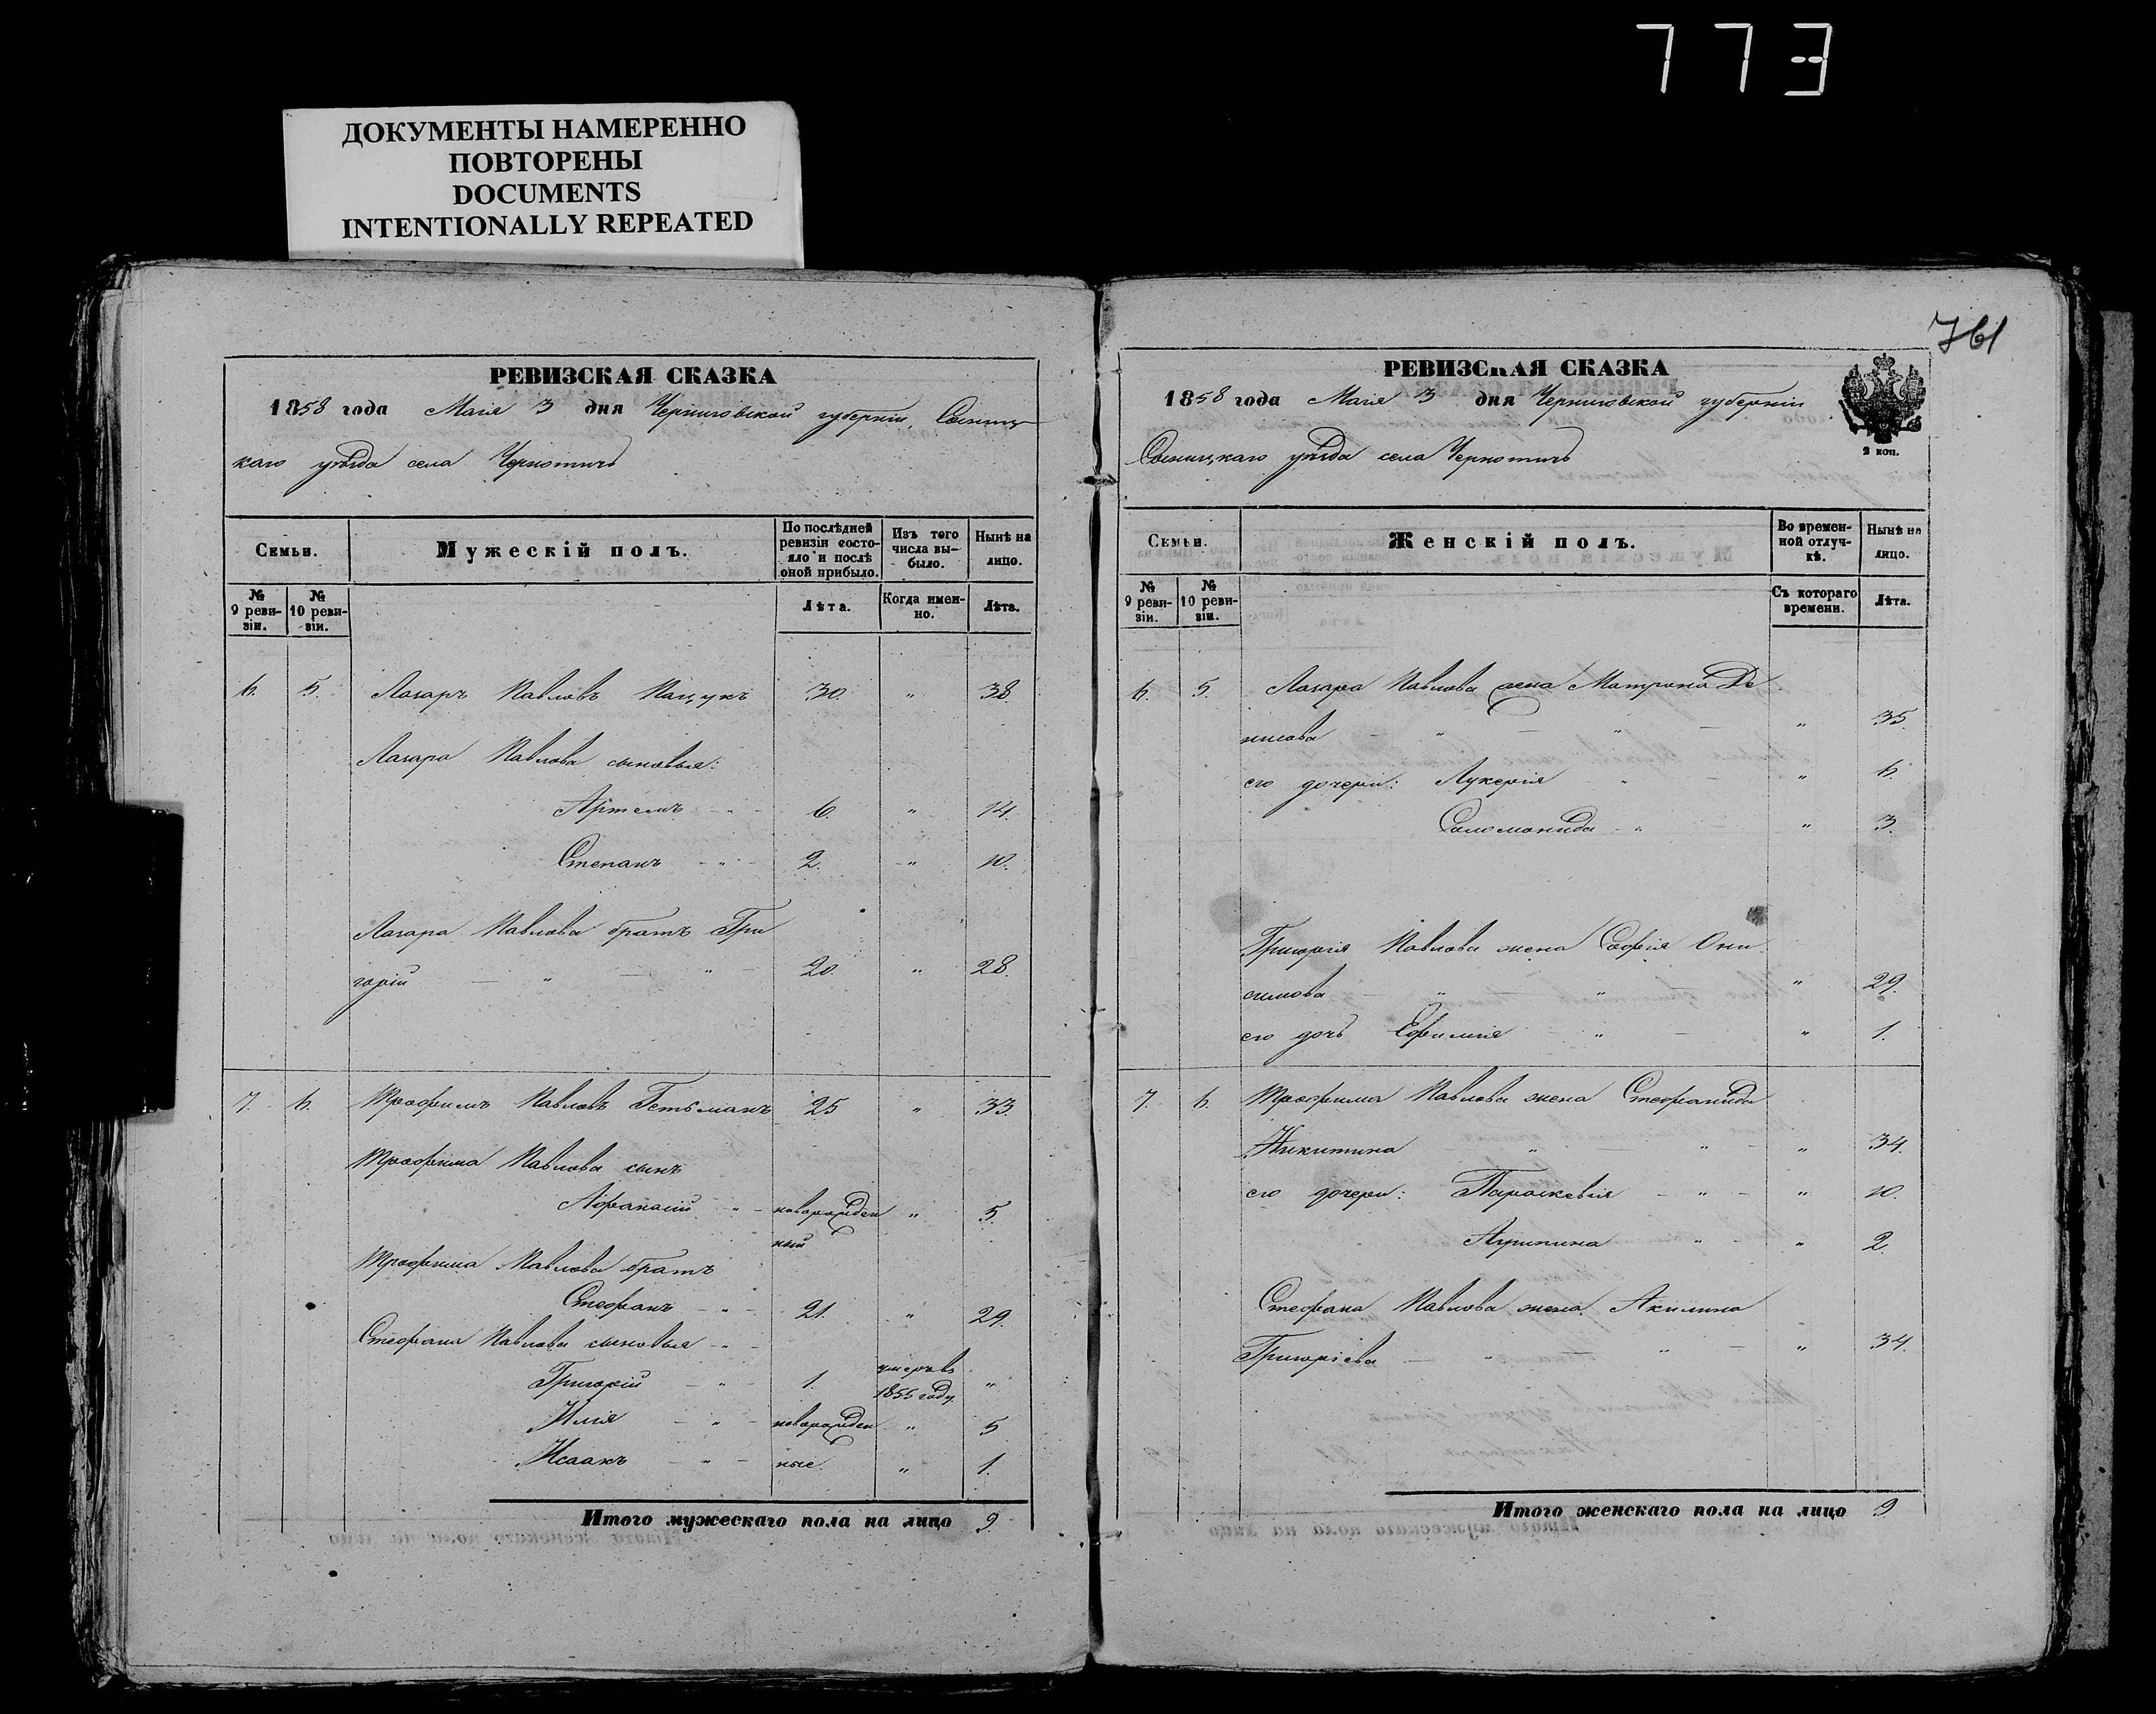 773
ДОКУМЕНТЫ НАМЕРЕННО
ПОВТОРЕНЫ
DOCUMENTS
INTENTIONALLY REPEATED
РЕВИЗСКАЯ СКАЗКА
1858 года Маія 3 дня Черниговской губерніи, Сосниц-
каго уѣзда села Чернотичъ
Семьи.
Мужескій полъ.
По послѣдней ревизіи состояло и послѣ оной прибыло.
Изъ того числа выбыло.
Нынѣ на лицо.
№ 9 ревизіи.
№ 10 ревизіи.
Лѣта.
Когда именно.
Лѣта.
6. 5. Лазарь Павловъ Пацукъ 30. " 38.
Лазара Павлова сыновья:
Артемъ - " - 6. " 14.
Степанъ - " - 2. " 10.
Лазара Павлова братъ Гри
горій — " — " 20. " 28.
7. 6. Трофимъ Павловъ Гетьманъ 25 " 33.
Трофима Павлова сынъ
Афанасій " - новорожден " 5.
ный
Трофима Павлова братъ
Стефанъ - " - 21. " 29.
Стефана Павлова сыновья - " -
Григорій - " - 1. умеръ въ 1855 году "
Илія - " - новорожден " 5
Исаакъ - " - ные. " 1.
Итого мужескаго пола на лицо 9.
761
РЕВИЗСКАЯ СКАЗКА
1858 года Маія 3 дня Черниговской губерніи
Сосницкаго уѣзда села Чернотичъ
2 коп.
Семьи.
Женскій полъ.
Во временной отлучкѣ.
Нынѣ на лицо.
№ 9 ревизіи.
№ 10 ревизіи.
Съ котораго времени.
Лѣта.
6. 5. Лазара Павлова жена Матрона Де
нисова - " — " — " 35.
его дочери: Лукерія " — " 6.
Соломонида - " " 3.
Григорія Павлова жена Софія Они
симова — " " " 29.
его дочь Ефимія " — " 1.
7. 6. Трофима Павлова жена Стефанида
Никитина — " — " - " 34.
его дочери: Параскевія - " - " 10.
Агрипина " - " 2
Стефана Павлова жена Акилина
Григоріева — " " — " 34.
Итого женскаго пола на лицо 9